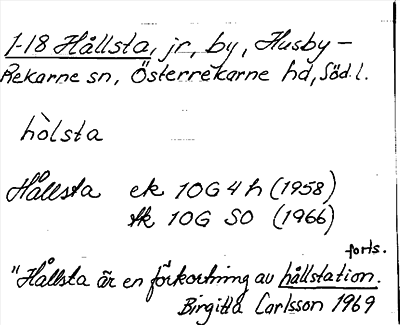 1-18 Hållsta, jr, by, Husby-
Rekarne sn, Österrekarne hd, Söd. l.
hòlsta
Hållsta ek 10G 4h (1958)
tk 10G SO (1966)
forts.
"Hållsta är en förkortning av hållstation.
Birgitta Carlsson 1969